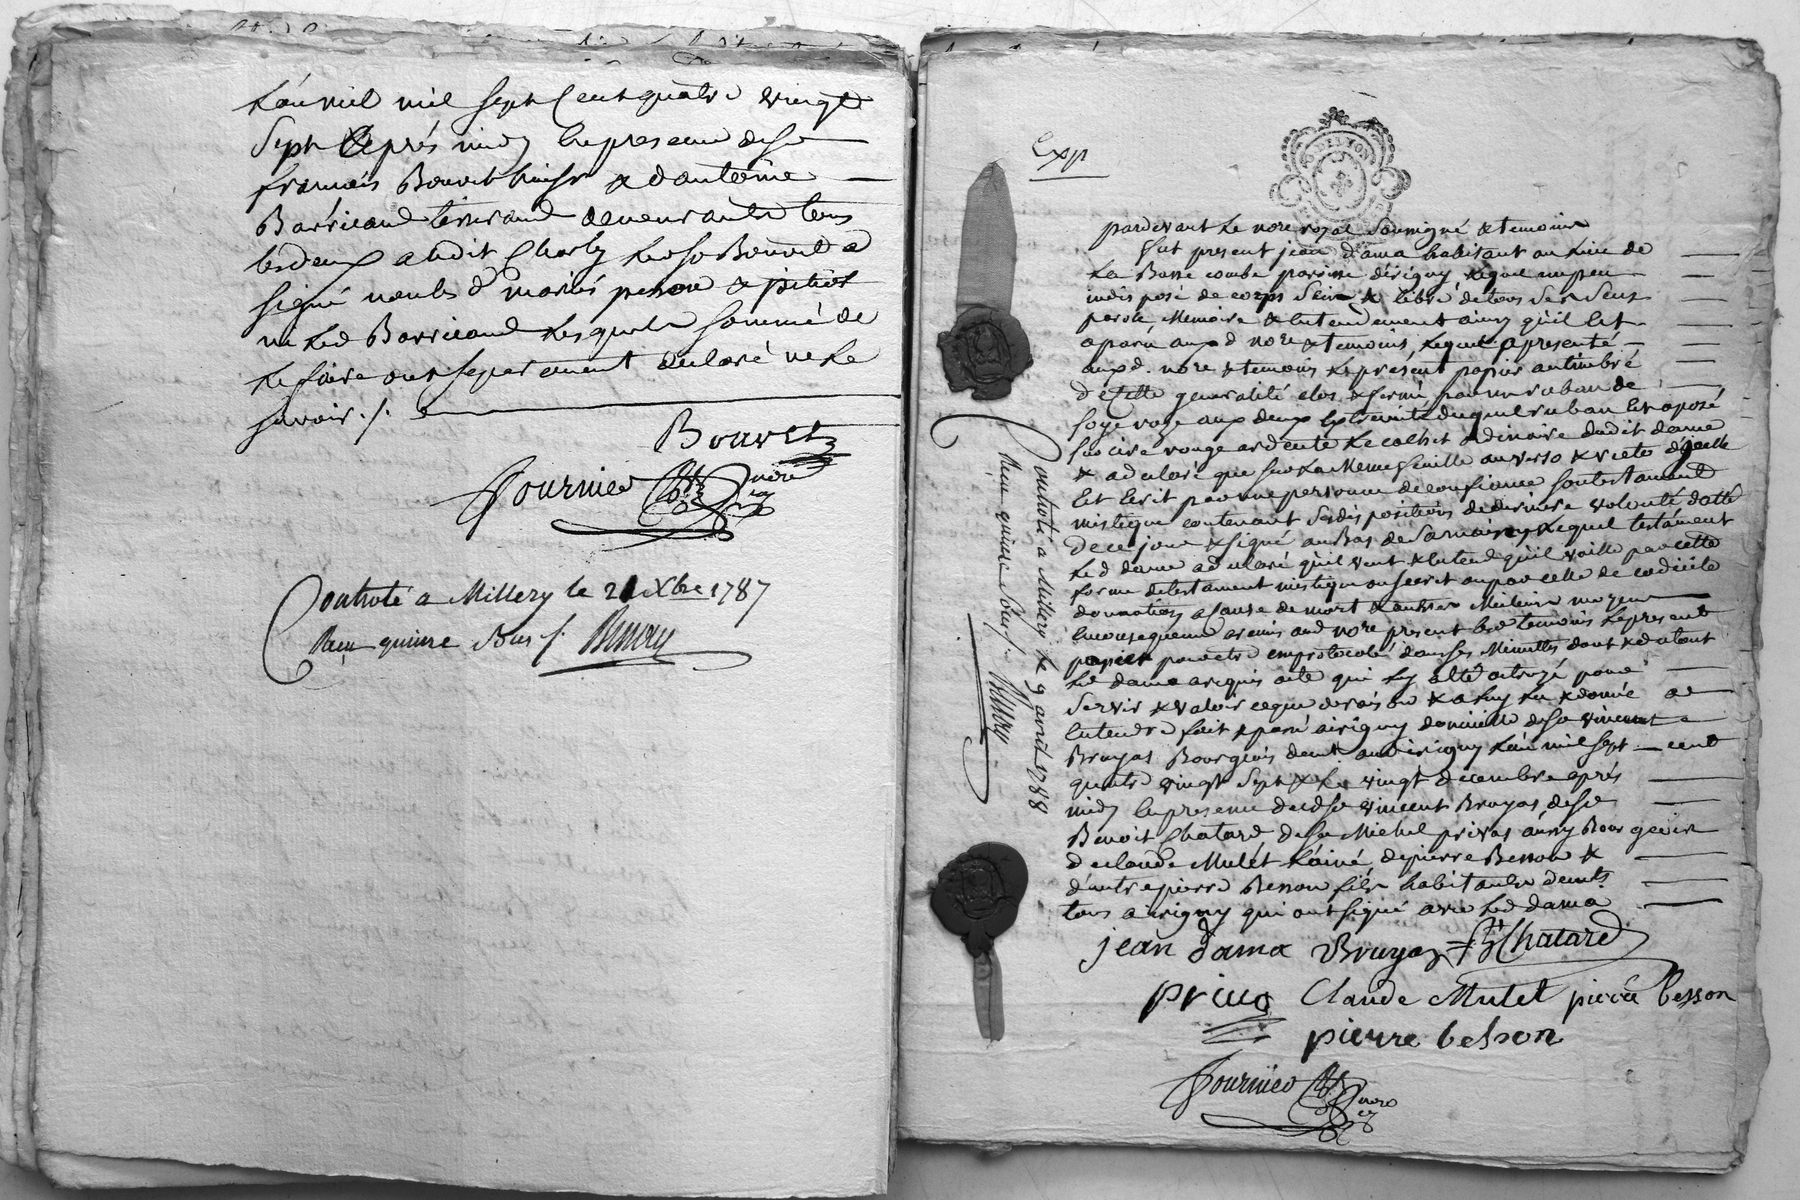 L'an mil mil sept Cent quatre vingt
Sept Après midy En presence de sr
françois Bouvet huissr & d'antoine
Barricaud tisserand demeurants tous
les deux audit Charly Ledsr Bouvet a
signé non les d. mariés pesson & pitiot
ni led Barricaud Lesquels sommé de
Le faire ont separement declaré ne Le
savoir ./.
Bouvet
fournier nore
Controlé a Millery le 21 Xbre 1787
Reçu quinze Sous ./.
Exp
pardevant Le nore royal soussigné & temoins
fut present jean dama habitant au Lieu de
La Basse combe paroisse d'irigny Lequel un peu
indisposé de corps Sain & libre de tous ses Sens
parole Memoire & Entendement ainsy qu'il Est
aparu auxd nore & temoins, Lequel a presenté
auxd. nore & temoins Le present papier au timbre
de cette generalité clos & fermé par un ruban de
soye roze aux deux Extremités duquel ruban Est aposé
sur cire rouge ardente Le cachet ordinaire dudit dama
& a declaré que sur La Meme feuille au verso & recto d'icelle
Est Ecrit par une personne de confiance son testament
mistique contenant Ses dispositions de derniere volonté datté
de ce jour & signé au Bas de Sa main, Lequel testament
Led dama a declaré qu'il veut & Entend qu'il vaille par cette
forme de testament mistique ou secret ou par celle de codicile
donnation a Cause de mort & autres Meilleurs moyens
En consequence a remis aud nore present lesd temoins Le present
papier pour etre En protocolé dans ses Minuttes dont & de tout
Led dama a requis acte qui Luy a été octroyé pour
Servir & valoir ce que de raison & a Luy Lu & donné a
Entendre fait & passé a irigny domicille de sr vincent
Bruyas Bourgeois demt audt irigny L'an mil sept cent
quatre vingt Sept & Le vingt decembre après
midy En presence dudsr vincent Bruyas de sr
Benoit Chatard de sr Michel privas aussy Bourgeois
de claude Mulet L'ainé, de pierre Besson &
d'autre pierre Besson fils habitants demts
tous a irigny qui ont signé avec Led dama
jean dama Bruyas Chatard
privas Claude Mulet pierre besson
pierre besson
fournier nore
Controlé a Millery le 9 avril 1788
Reçu quinze Sous ./.